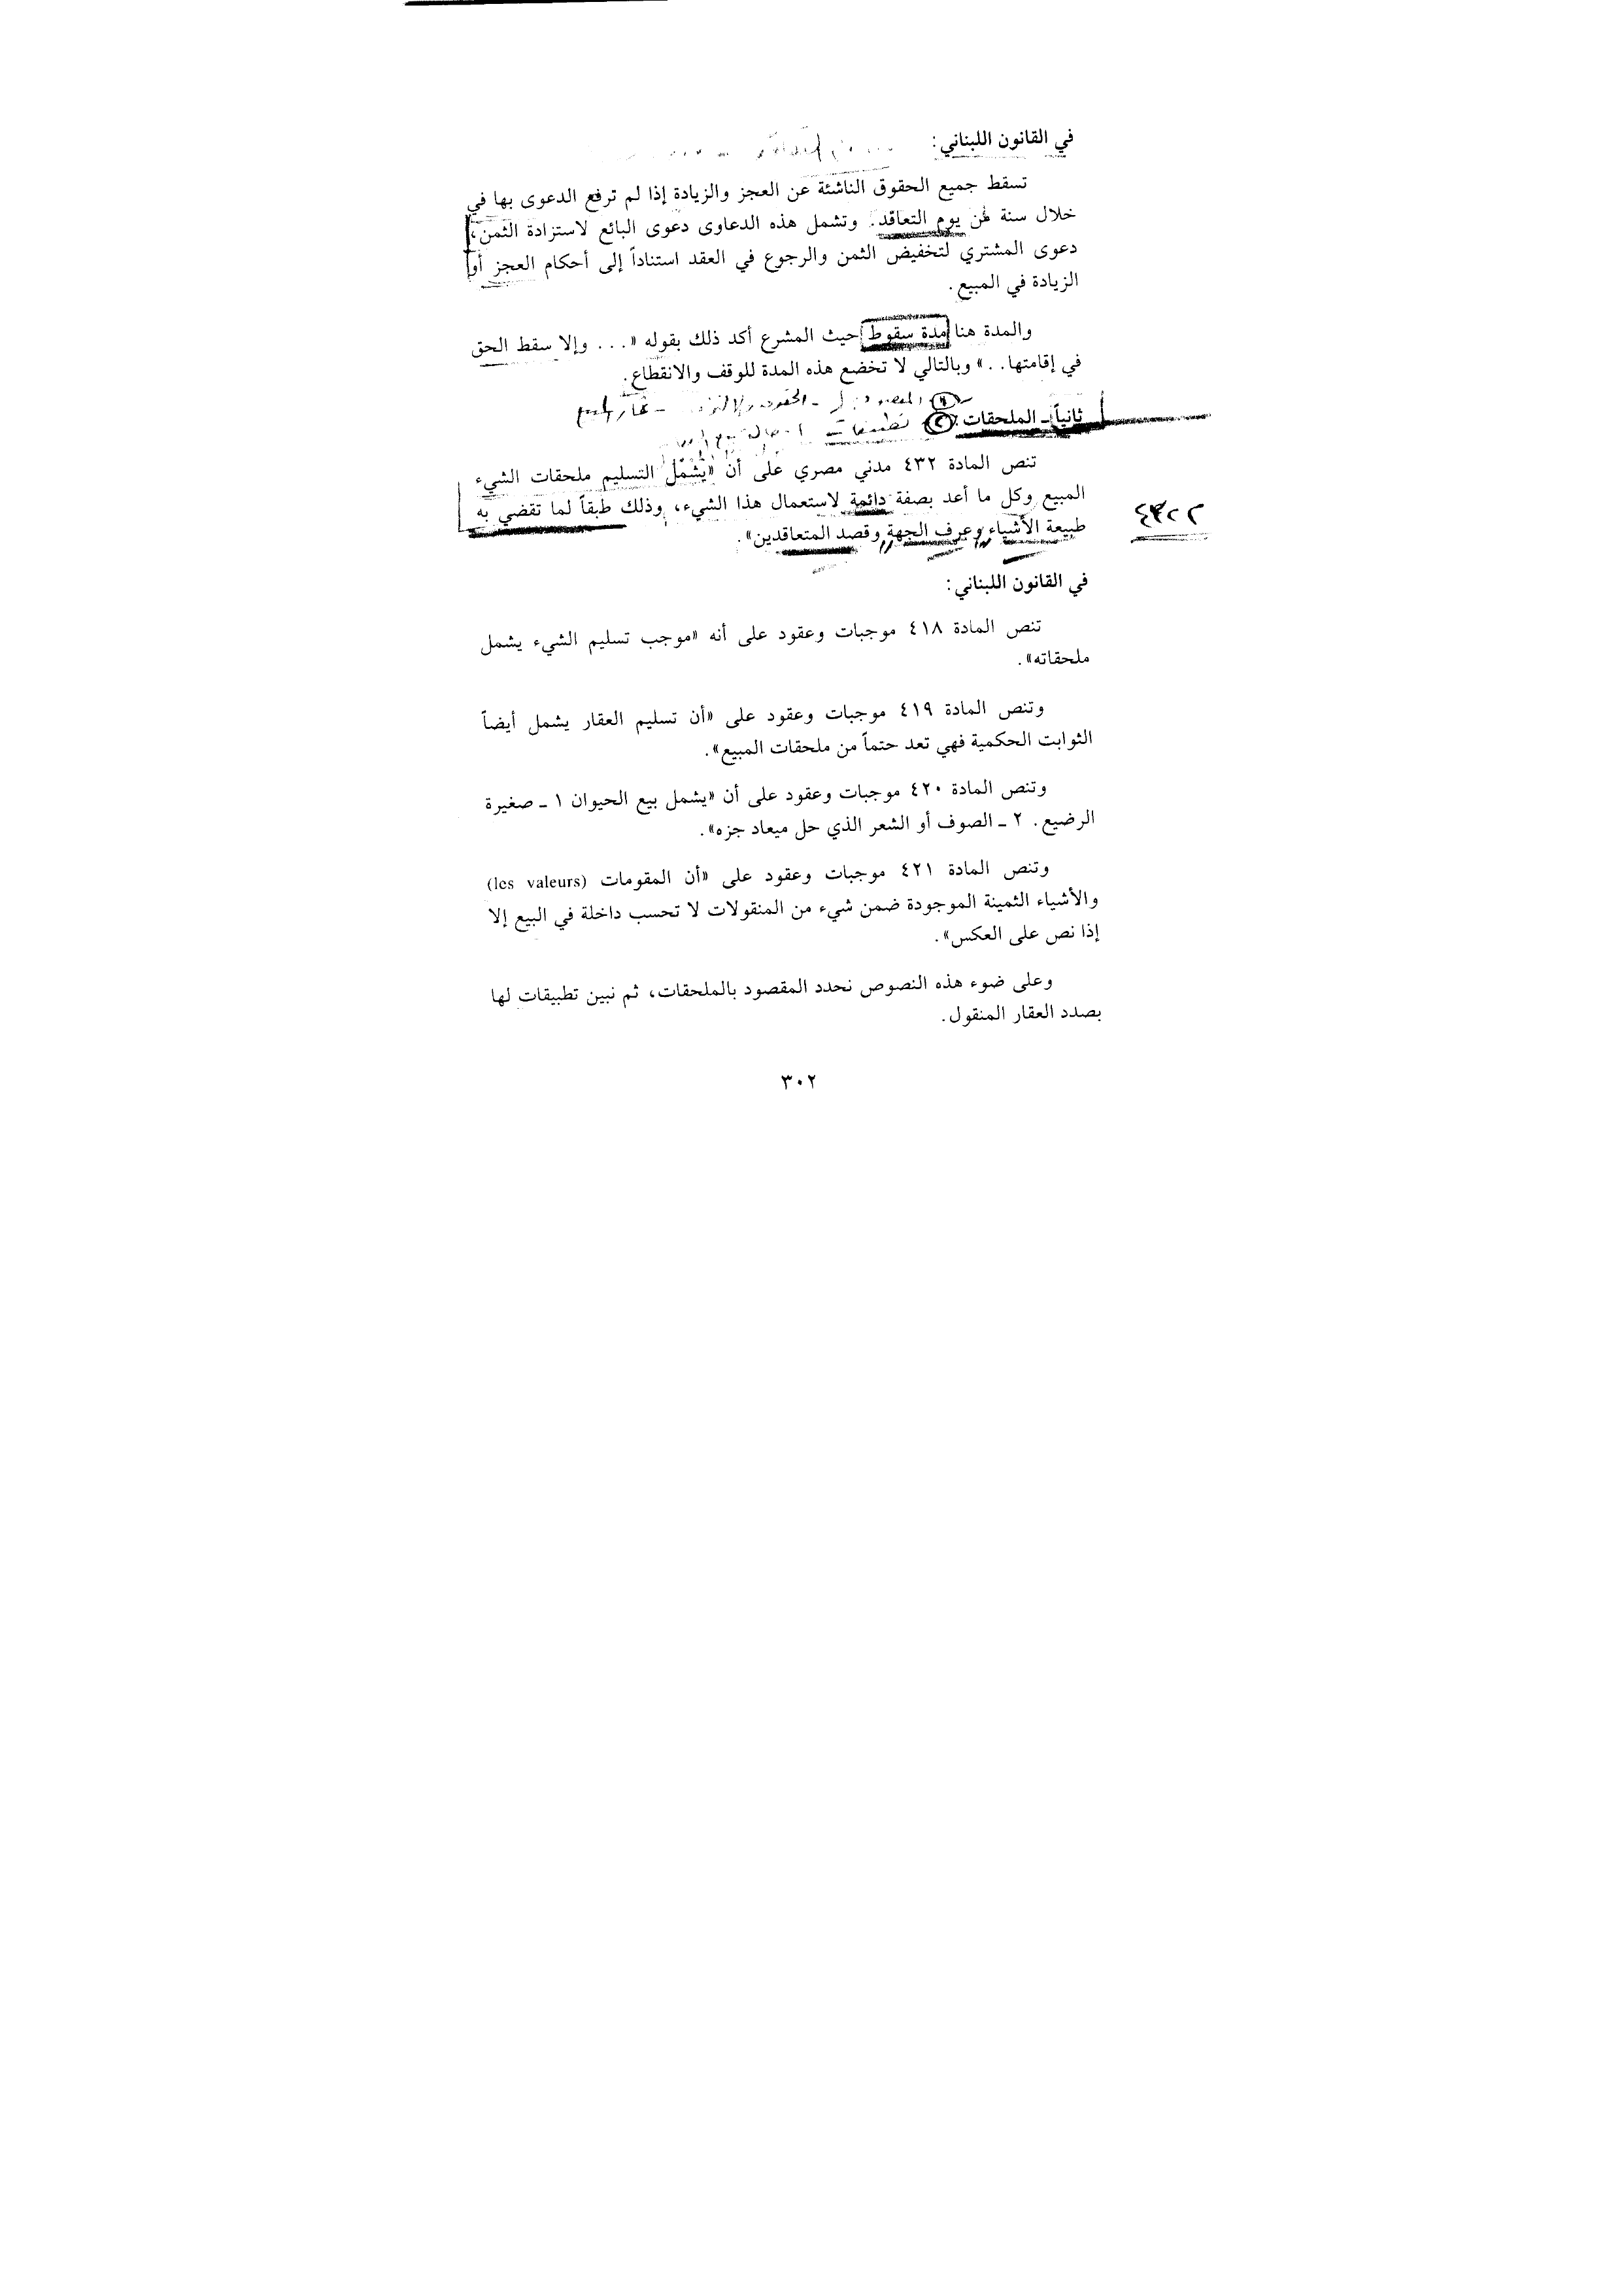 في القانون اللبناني:
تسقط جميع الحقوق الناشئة عن العجز والزيادة إذا لم ترفع الدعوى بها في
خلال سنة من يوم التعاقد. وتشمل هذه الدعاوى دعوى البائع لاستزادة الثمن،
دعوى المشتري لتخفيض الثمن والرجوع في العقد استناداً إلى أحكام العجز أو
الزيادة في المبيع.
والمدة هنا مدة سقوط حيث المشرع أكد ذلك بقوله «... وإلا سقط الحق
في إقامتها..» وبالتالي لا تخضع هذه المدة للوقف والانقطاع.
ثانياً ـ الملحقات: تطبيقات
تنص المادة ٤٣٢ مدني مصري على أن «يشمل التسليم ملحقات الشيء
المبيع وكل ما أعد بصفة دائمة لاستعمال هذا الشيء، وذلك طبقاً لما تقضي به
طبيعة الأشياء وعرف الجهة وقصد المتعاقدين».
في القانون اللبناني:
تنص المادة ٤١٨ موجبات وعقود على أنه «موجب تسليم الشيء يشمل
ملحقاته».
وتنص المادة ٤١٩ موجبات وعقود على «أن تسليم العقار يشمل أيضاً
الثوابت الحكمية فهي تعد حتماً من ملحقات المبيع».
وتنص المادة ٤٢٠ موجبات وعقود على أن «يشمل بيع الحيوان ١ ـ صغيرة
الرضيع. ٢ ـ الصوف أو الشعر الذي حل ميعاد جزه».
وتنص المادة ٤٢١ موجبات وعقود على «أن المقومات (les valeurs)
والأشياء الثمينة الموجودة ضمن شيء من المنقولات لا تحسب داخلة في البيع إلا
إذا نص على العكس».
وعلى ضوء هذه النصوص نحدد المقصود بالملحقات، ثم نبين تطبيقات لها
بصدد العقار المنقول.
٣٠٢